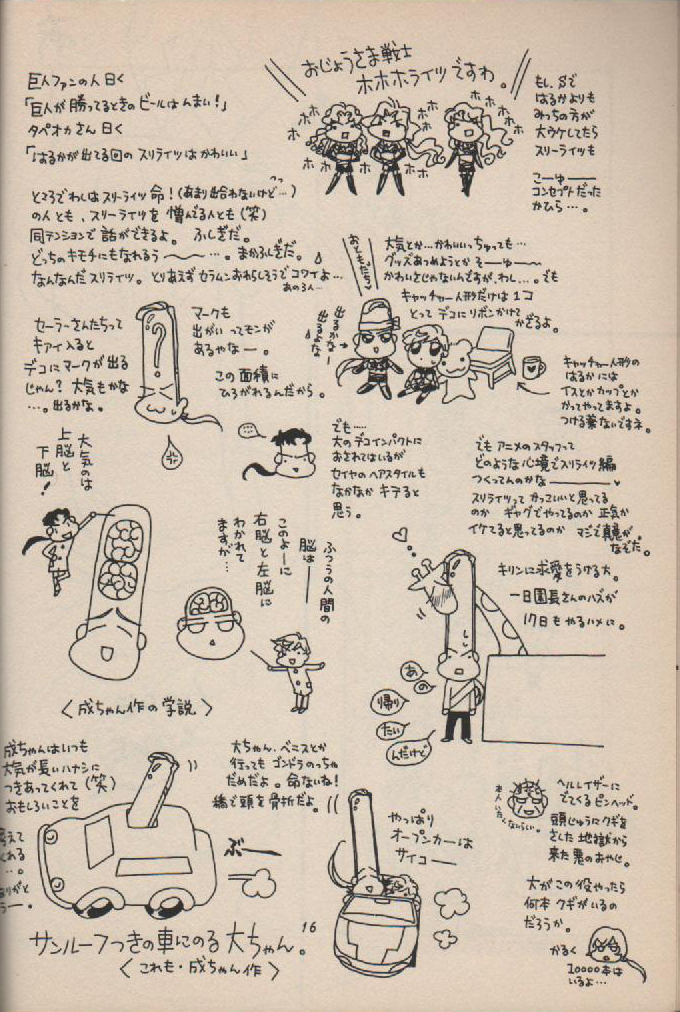 おじょうさま戦士
ホホホライツですわ。
ホホ
ホホ
ホホ
ホホ
ホホ
ホホ
ホホ
もし、Sで
はるかよりも
みっちの方が
大ウケしてたら
スリーライツも
こーゆー
コンセプトだった
かひら…。
巨人ファンの人曰く
「巨人が勝ってるときのビールはんまい!」
タペオカさん曰く
「はるかが出てる回のスリライツはかわいい」
ところでわしはスリーライツ命!(あまり出会わないけど…)
の人とも、スリーライツを憎んでる人とも(笑)
同テンションで話ができるよ。ふしぎだ。
どっちのキモチにもなれるう〜〜…。まかふしぎだ。
なんなんだスリライツ。とりあえずセラムンおわらしそうでコワイよ…
あの3人…
大気とか…かわいいっちゅっても…
グッズあつめようとか そーゆー〜
かわいさじゃないんですが、わし…。でも
キャッチャー人形だけは1コ
とって デコにリボンかけて
かざるよ。
おともだち
出るかなー
出るかなー
キャッチャー人形の
はるかには
イスとかカップとか
かってやってますよ。
つける薬ないですネ。
セーラーさんたちって
キアイ入ると
デコにマークが出る
じゃん? 大気もかな
…。出るかな。
?
マークも
出がいってモンが
あるやなー。
この面積に
ひろがれるんだから。
でも…
大のデコインパクトに
おされてはいるが
セイヤのヘアスタイルも
なかなかキテると
思う。
でもアニメのスタッフって
どのような心境でスリライツ編
つくってんのかなー
スリライツって かっこいいと思ってる
のか ギャグでやってるのか 正気か
イケてると思ってるのか マジで真意が
なぞだ。
大気のは
上脳と
下脳!
ふつうの人間の
脳は
このよーに
右脳と左脳に
わかれて
ますが…
〈成ちゃん作の学説〉
キリンに求愛をうける大。
一日園長さんのハズが
17日もやるハメに。
あ
の
帰り
たい
んだけど
成ちゃんはいつも
大気が長いハナシに
つきあってくれて(笑)
おもしろいことを
考えて
くれる
…。
ありがと
うー。
大ちゃん、ベニスとか
行ってもゴンドラのっちゃ
だめだよ。命ないね!
橋で頭を骨折だよ。
ぶー
サンルーフつきの車にのる大ちゃん。
〈これも・成ちゃん作〉
やっぱり
オープンカーは
サイコー
ヘルレイザーに
でてくるピンヘッド。
頭じゅうにクギを
さした地獄から
来た悪のおやじ。
本人いたくないらしい。
大がこの役やったら
何本クギがいるの
だろうか。
かるく
10000本は
いるよ…
16